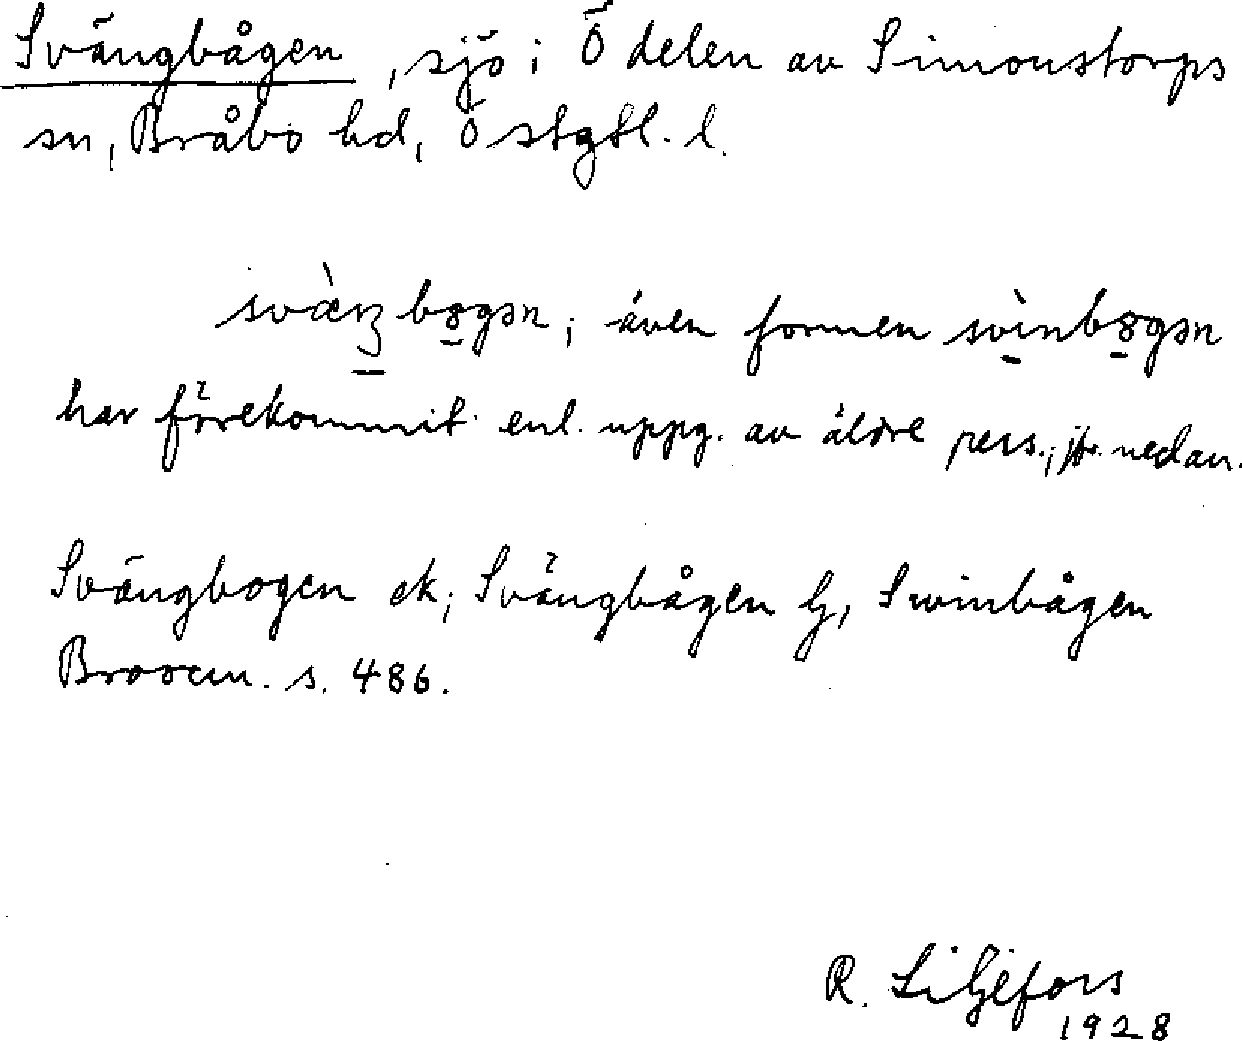 Svängbågen, sjö i Ö delen av Simonstorps
sn, Bråbo hd, Östgtl. l.
svàŋbøgən; även formen svìnbøgən
har förekommit enl. uppg. av äldre pers.; jfr nedan.
Svängbogen ek; Svängbågen G, Swinbågen
Broocm. s. 486.
R. Liljefors
1928